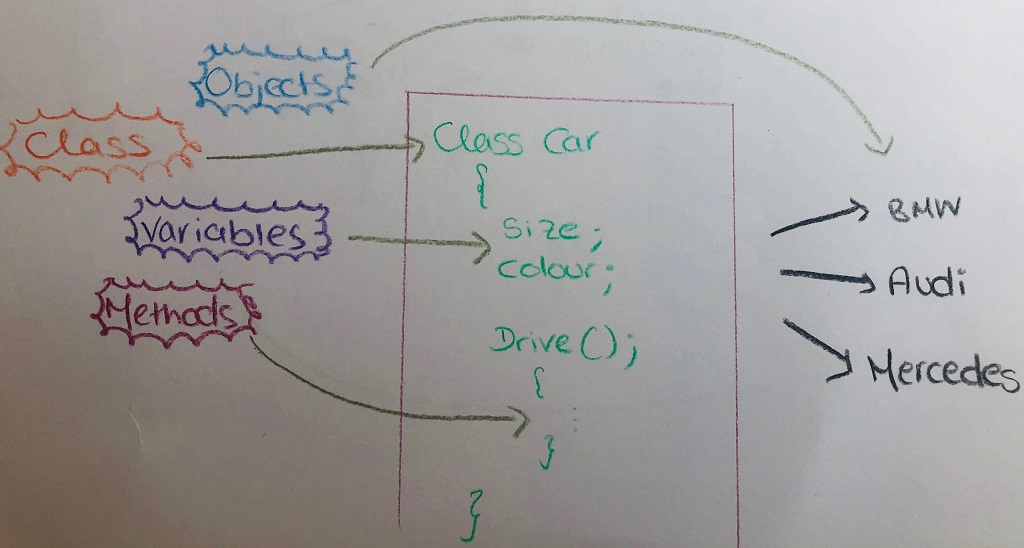 Objects
Class
Variables
Methods
Class Car
{
Size;
Colour;
Drive();
{
⋮
}
}
BMW
Audi
Mercedes